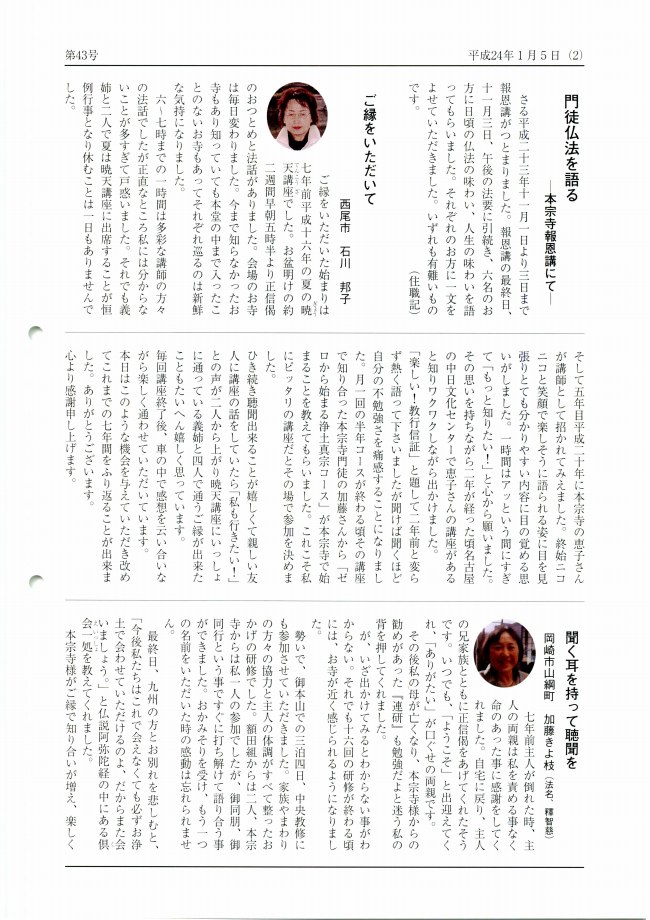 第43号
平成24年１月５日（2）
門徒仏法を語る
――本宗寺報恩講にて――
さる平成二十三年十一月一日より三日まで
報恩講がつとまりました。報恩講の最終日、
十一月三日、午後の法要に引続き、六名のお
方に日頃の仏法の味わい、人生の味わいを語
ってもらいました。それぞれのお方に一文を
よせていただきました。いずれも有難いもの
です。
（住職記）
ご縁をいただいて
西尾市　石川　邦子
ご縁をいただいた始まりは
七年前平成十六年の夏の暁
天講座でした。お盆明けの約
二週間早朝五時半より正信偈
のおつとめと法話がありました。会場のお寺
は毎日変わりました。今まで知らなかったお
寺もあり知っていても本堂の中まで入ったこ
とのないお寺もあってそれぞれ巡るのは新鮮
な気持になりました。
六～七時までの一時間は多彩な講師の方々
の法話でしたが正直なところ私には分からな
いことが多すぎて戸惑いました。それでも義
姉と二人で夏は暁天講座に出席することが恒
例行事となり休むことは一日もありませんで
した。
そして五年目平成二十年に本宗寺の恵子さん
が講師として招かれてみえました。終始ニコ
ニコと笑顔で楽しそうに語られる姿に目を見
張りとても分かりやすい内容に目の覚める思
いがしました。一時間はアッという間にすぎ
て「もっと知りたい！」と心から願いました。
その思いを持ちながら二年が経った頃名古屋
の中日文化センターで恵子さんの講座がある
と知りワクワクしながら出かけました。
「楽しい！教行信証」と題して二年前と変ら
ず熱く語って下さいましたが聞けば聞くほど
自分の不勉強さを痛感することになりまし
た。月一回の半年コースが終わる頃その講座
で知り合った本宗寺門徒の加藤さんから「ゼ
ロから始まる浄土真宗コース」が本宗寺で始
まることを教えてもらいました。これこそ私
にピッタリの講座だとその場で参加を決めま
した。
ひき続き聴聞出来ることが嬉しくて親しい友
人に講座の話をしていたら「私も行きたい！」
との声が二人から上がり暁天講座にいっしょ
に通っている義姉と四人で通うご縁が出来た
こともたいへん嬉しく思っています。
毎回講座終了後、車の中で感想を云い合いな
がら楽しく通わせていただいています。
本日はこのような機会を与えていただき改め
てこれまでの七年間をふり返ることが出来ま
した。ありがとうございます。
心より感謝申し上げます。
聞く耳を持って聴聞を
岡崎市山綱町　加藤きよ枝（法名、釋智慈）
七年前主人が倒れた時、主
人の両親は私を責める事なく
命のあった事に感謝をしてく
れました。自宅に戻り、主人
の兄家族とともに正信偈をあげてくれたそう
です。いつでも、「ようこそ」と出迎えてく
れ、「ありがたい」が口ぐせの両親です。
その後私の母が亡くなり、本宗寺様からの
勧めがあった『連研』も勉強だよと迷う私の
背を押してくれました。
が、いざ出かけてみるとわからない事がわ
からない。それでも十六回の研修が終わる頃
には、お寺が近く感じられるようになりまし
た。
勢いで、御本山での三泊四日、中央教修に
も参加させていただきました。家族やまわり
の方々の協力と主人の体調がすべて整ったお
かげの研修でした。額田組からは二人、本宗
寺からは私一人の参加でしたが、御同朋、御
同行という事ですぐに打ち解けて語り合う事
ができました。おかみそりを受け、もう一つ
の名前をいただいた時の感動は忘れられませ
ん。
最終日、九州の方とお別れを悲しむと、
「今後私たちはこれで会えなくても必ずお浄
土で会わせていただけるのよ、だからまた会
いましょう。」と仏説阿弥陀経の中にある倶
会一処を教えてくれました。
本宗寺様がご縁で知り合いが増え、楽しく